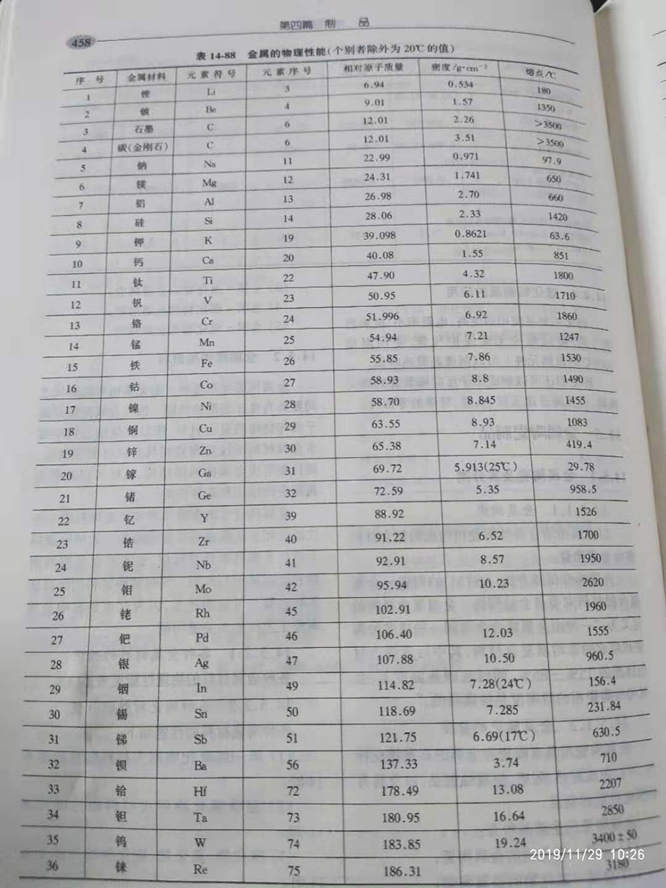 第四篇 制 品
458
表 14-88 金属的物理性能(个别者除外为 20℃的值)
序 号 金属材料 元 素 符 号 元 素 序 号 相对原子质量 密度/g·cm⁻³ 熔点/℃
1 锂 Li 3 6.94 0.534 180
2 铍 Be 4 9.01 1.57 1350
3 石墨 C 6 12.01 2.26 >3500
4 碳(金刚石) C 6 12.01 3.51 >3500
5 钠 Na 11 22.99 0.971 97.9
6 镁 Mg 12 24.31 1.741 650
7 铝 Al 13 26.98 2.70 660
8 硅 Si 14 28.06 2.33 1420
9 钾 K 19 39.098 0.8621 63.6
10 钙 Ca 20 40.08 1.55 851
11 钛 Ti 22 47.90 4.32 1800
12 钒 V 23 50.95 6.11 1710
13 铬 Cr 24 51.996 6.92 1860
14 锰 Mn 25 54.94 7.21 1247
15 铁 Fe 26 55.85 7.86 1530
16 钴 Co 27 58.93 8.8 1490
17 镍 Ni 28 58.70 8.845 1455
18 铜 Cu 29 63.55 8.93 1083
19 锌 Zn 30 65.38 7.14 419.4
20 镓 Ga 31 69.72 5.913(25℃) 29.78
21 锗 Ge 32 72.59 5.35 958.5
22 钇 Y 39 88.92 1526
23 锆 Zr 40 91.22 6.52 1700
24 铌 Nb 41 92.91 8.57 1950
25 钼 Mo 42 95.94 10.23 2620
26 铑 Rh 45 102.91 1960
27 钯 Pd 46 106.40 12.03 1555
28 银 Ag 47 107.88 10.50 960.5
29 铟 In 49 114.82 7.28(24℃) 156.4
30 锡 Sn 50 118.69 7.285 231.84
31 锑 Sb 51 121.75 6.69(17℃) 630.5
32 钡 Ba 56 137.33 3.74 710
33 铪 Hf 72 178.49 13.08 2207
34 钽 Ta 73 180.95 16.64 2850
35 钨 W 74 183.85 19.24 3400±50
36 铼 Re 75 186.31 3180
2019/11/29 10:26